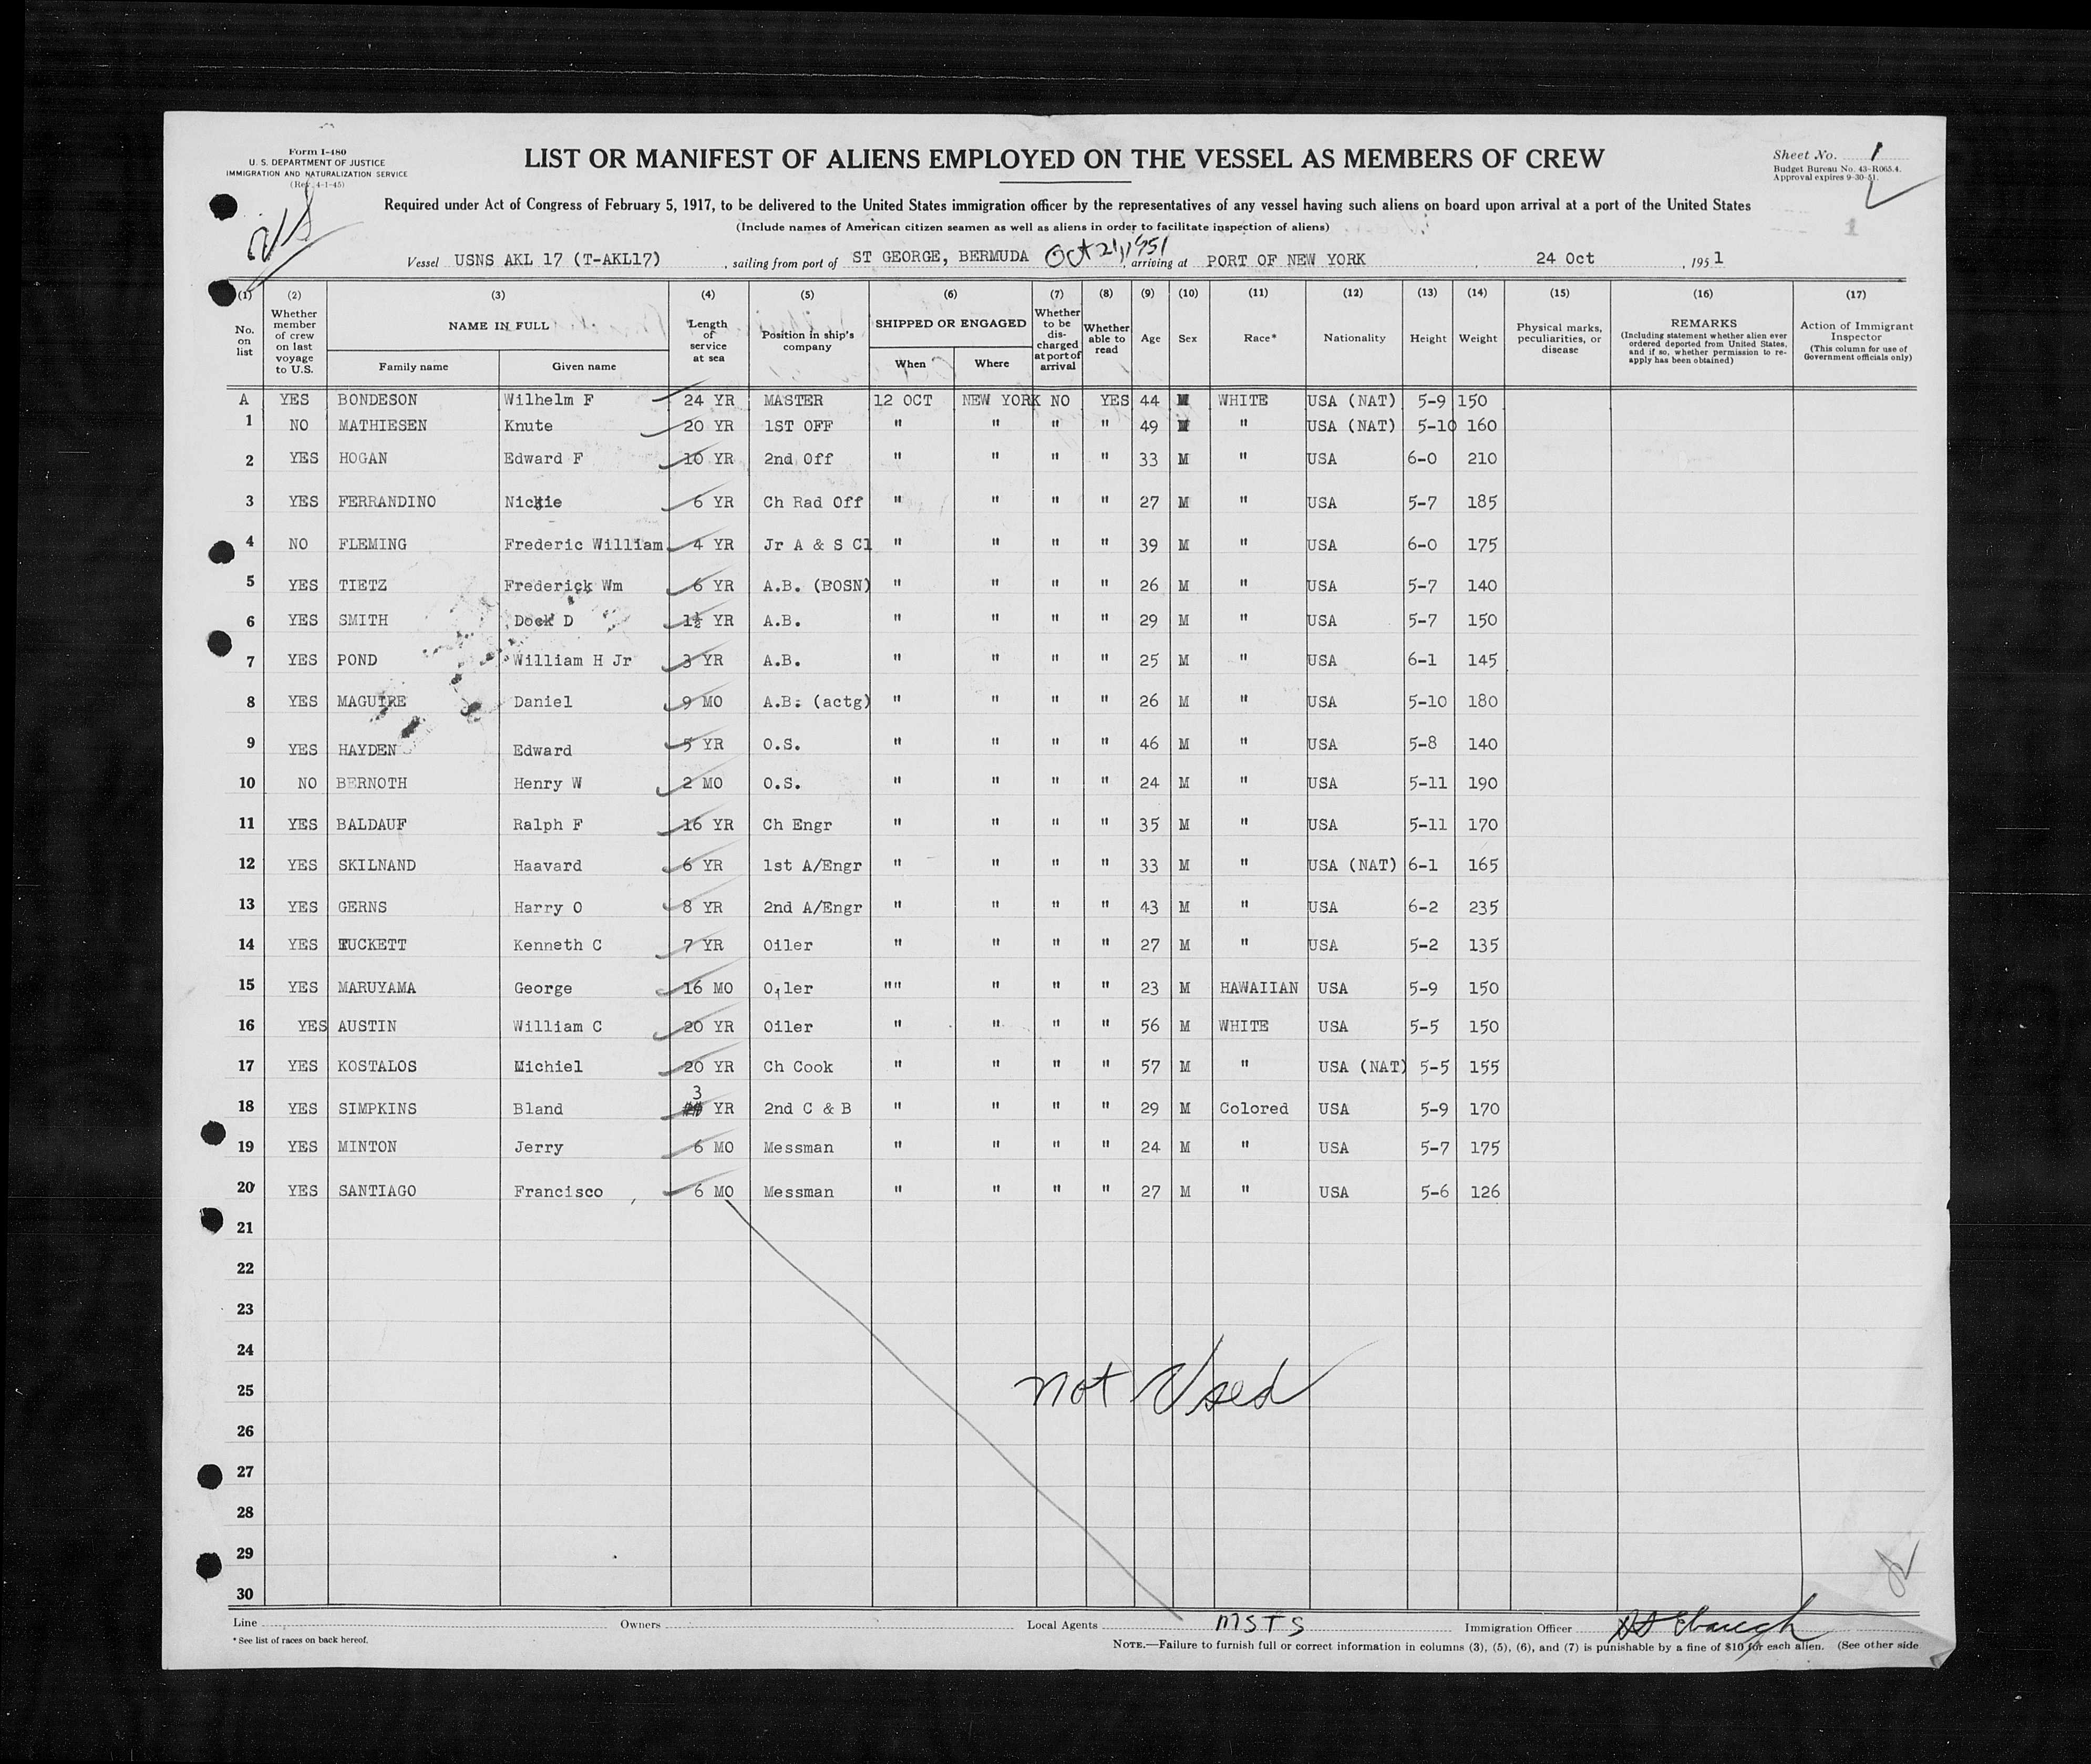 Form I-480
U. S. DEPARTMENT OF JUSTICE
IMMIGRATION AND NATURALIZATION SERVICE
(Rev. 4-1-45)
LIST OR MANIFEST OF ALIENS EMPLOYED ON THE VESSEL AS MEMBERS OF CREW
Sheet No. 1
Budget Bureau No. 43-R065.4.
Approval expires 9-30-51.
Required under Act of Congress of February 5, 1917, to be delivered to the United States immigration officer by the representatives of any vessel having such aliens on board upon arrival at a port of the United States
(Include names of American citizen seamen as well as aliens in order to facilitate inspection of aliens)
1
Vessel USNS AKL 17 (T-AKL17), sailing from port of ST GEORGE, BERMUDA Oct 21, 1951, arriving at PORT OF NEW YORK, 24 Oct, 1951
(1) (2) (3) (4) (5) (6) (7) (8) (9) (10) (11) (12) (13) (14) (15) (16) (17)
No. on list
Whether member of crew on last voyage to U.S.
NAME IN FULL
Family name Given name
Length of service at sea
Position in ship's company
SHIPPED OR ENGAGED
When Where
Whether to be discharged at port of arrival
Whether able to read
Age
Sex
Race*
Nationality
Height
Weight
Physical marks, peculiarities, or disease
REMARKS
(Including statement whether alien ever ordered deported from United States, and if so, whether permission to reapply has been obtained)
Action of Immigrant Inspector
(This column for use of Government officials only)
A YES BONDESON Wilhelm F 24 YR MASTER 12 OCT NEW YORK NO YES 44 M WHITE USA (NAT) 5-9 150
1 NO MATHIESEN Knute 20 YR 1ST OFF " " " " 49 M " USA (NAT) 5-10 160
2 YES HOGAN Edward F 10 YR 2nd Off " " " " 33 M " USA 6-0 210
3 YES FERRANDINO Nickie 6 YR Ch Rad Off " " " " 27 M " USA 5-7 185
4 NO FLEMING Frederic William 4 YR Jr A & S Cl " " " " 39 M " USA 6-0 175
5 YES TIETZ Frederick Wm 6 YR A.B. (BOSN) " " " " 26 M " USA 5-7 140
6 YES SMITH Dock D 1½ YR A.B. " " " " 29 M " USA 5-7 150
7 YES POND William H Jr 3 YR A.B. " " " " 25 M " USA 6-1 145
8 YES MAGUIRE Daniel 9 MO A.B. (actg) " " " " 26 M " USA 5-10 180
9 YES HAYDEN Edward 5 YR O.S. " " " " 46 M " USA 5-8 140
10 NO BERNOTH Henry W 2 MO O.S. " " " " 24 M " USA 5-11 190
11 YES BALDAUF Ralph F 16 YR Ch Engr " " " " 35 M " USA 5-11 170
12 YES SKILNAND Haavard 6 YR 1st A/Engr " " " " 33 M " USA (NAT) 6-1 165
13 YES GERNS Harry O 8 YR 2nd A/Engr " " " " 43 M " USA 6-2 235
14 YES TUCKETT Kenneth C 7 YR Oiler " " " " 27 M " USA 5-2 135
15 YES MARUYAMA George 16 MO Oiler "" " " " 23 M HAWAIIAN USA 5-9 150
16 YES AUSTIN William C 20 YR Oiler " " " " 56 M WHITE USA 5-5 150
17 YES KOSTALOS Michiel 20 YR Ch Cook " " " " 57 M " USA (NAT) 5-5 155
18 YES SIMPKINS Bland 3 YR 2nd C & B " " " " 29 M Colored USA 5-9 170
19 YES MINTON Jerry 6 MO Messman " " " " 24 M " USA 5-7 175
20 YES SANTIAGO Francisco 6 MO Messman " " " " 27 M " USA 5-6 126
21
22
23
24
25 not Used
26
27
28
29
30
Line Owners Local Agents MSTS Immigration Officer
* See list of races on back hereof.
NOTE.—Failure to furnish full or correct information in columns (3), (5), (6), and (7) is punishable by a fine of $10 for each alien. (See other side